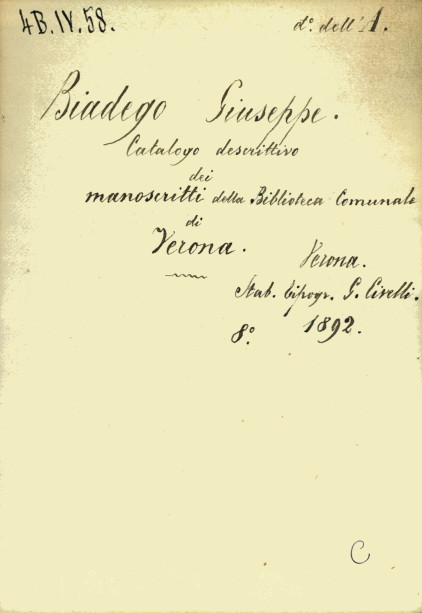 4B.IV.58.
d.º dell'A.
Biadego Giuseppe.
Catalogo descrittivo
dei
manoscritti della Biblioteca Comunale
di
Verona.
Verona.
Stab. tipogr. G. Civelli.
8.º 1892.
C